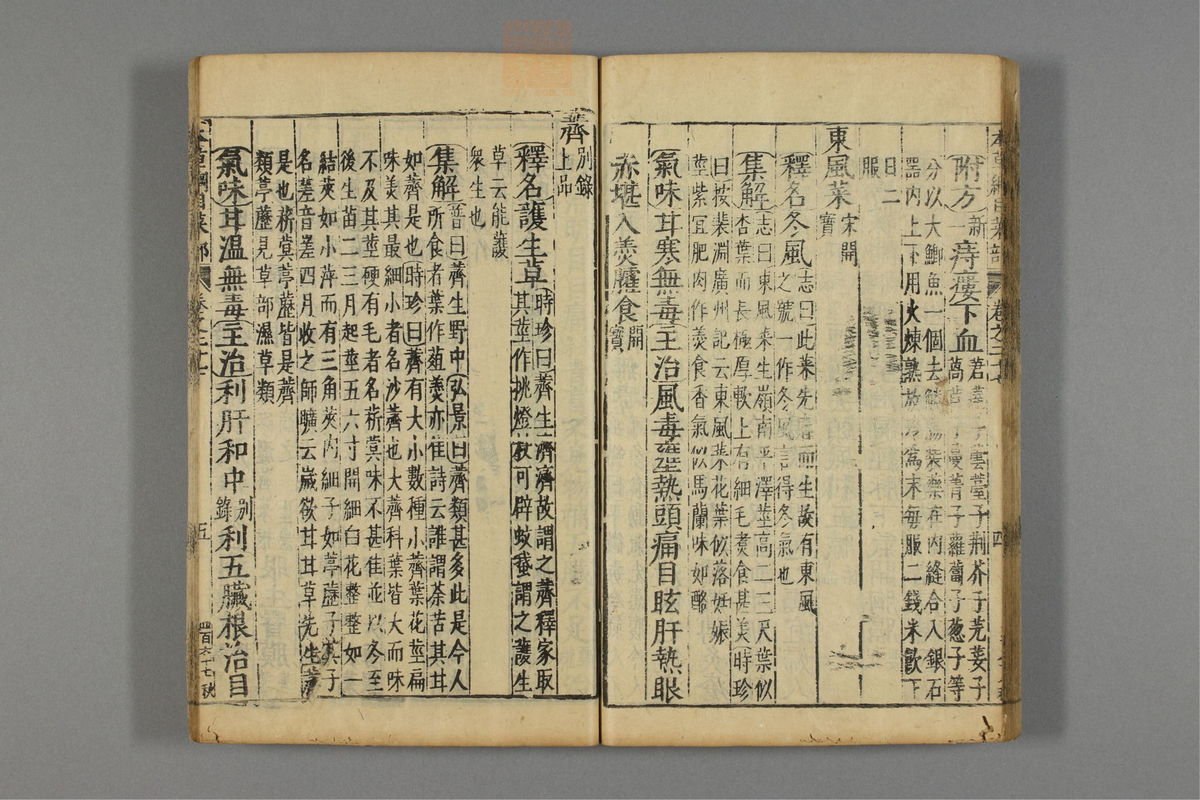 附方新一痔瘻下血
子雲薹子荆芥子芫荽子
萵苣子蔓菁子蘿蔔子葱子等
分以大鯽魚一個去鱗腸裝藥在内縫合入銀石
器内上下用火煉熟放冷爲末每服二錢米飲下
日二
服
東風菜宋開寶
釋名冬風志曰此菜先春而生故有東風
之號一作冬風言得冬氣也
集解志曰東風菜生嶺南平澤莖高二三尺葉似
杏葉而長極厚軟上有細毛煑食甚美時珍
曰按裴淵廣州記云東風菜花葉似落妊娠
莖紫宜肥肉作羹食香氣似馬蘭味如酪
氣味甘寒無毒主治風毒壅熱頭痛目眩肝熱眼
赤堪入羮臛食開寶
薺別錄上品
釋名護生草時珍曰薺生濟濟故謂之薺釋家取
其莖作挑燈杖可辟蚊蛾謂之護生
草云能護
衆生也
集解普曰薺生野中弘景曰薺類甚多此是今人
所食者葉作葅羹亦佳詩云誰謂荼苦其甘
如薺是也時珍曰薺有大小數種小薺葉花莖扁
味美其最細小者名沙薺也大薺科葉皆大而味
不及其莖硬有毛者名菥蓂味不甚佳並以冬至
後生苗二三月起莖五六寸開細白花整整如一
結莢如小萍而有三角莢内細子如葶藶子其子
名蒫音嵯四月收之師曠云歲欲甘甘草先生薺
是也菥蓂葶藶皆是薺
類葶藶見草部濕草類
氣味甘溫無毒主治利肝和中別錄利五臟根治目
卷之二十七
四
五